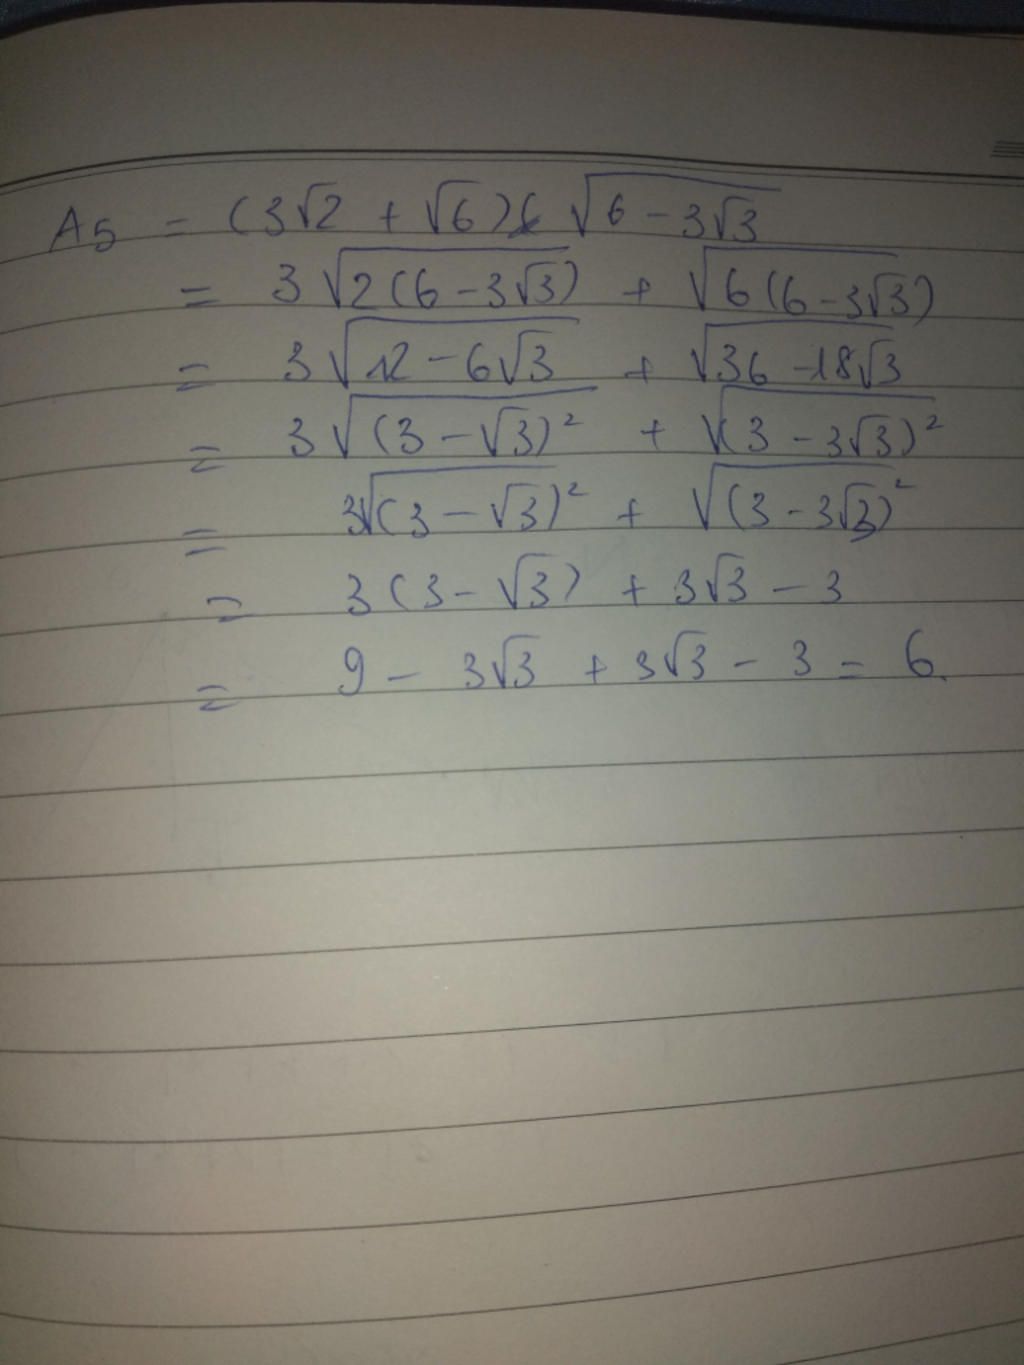 A5 = (3√2 + √6) √(6 - 3√3)
= 3√(2(6 - 3√3)) + √(6(6 - 3√3))
= 3√(12 - 6√3) + √(36 - 18√3)
= 3√((3 - √3)²) + √((3 - 3√3)²)
= 3√((3 - √3)²) + √((3 - 3√3)²)
= 3(3 - √3) + 3√3 - 3
= 9 - 3√3 + 3√3 - 3 = 6.